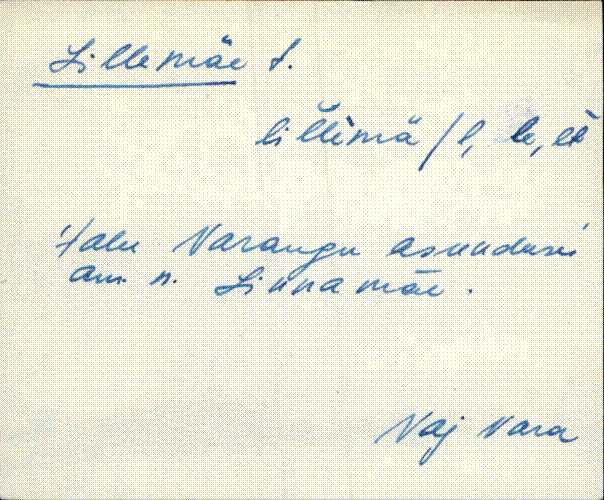 Lillemäe t.
lillemä /l, le, lt
Talu Varangu asunduses
am. n. Linnamäe.
Vaj Vara